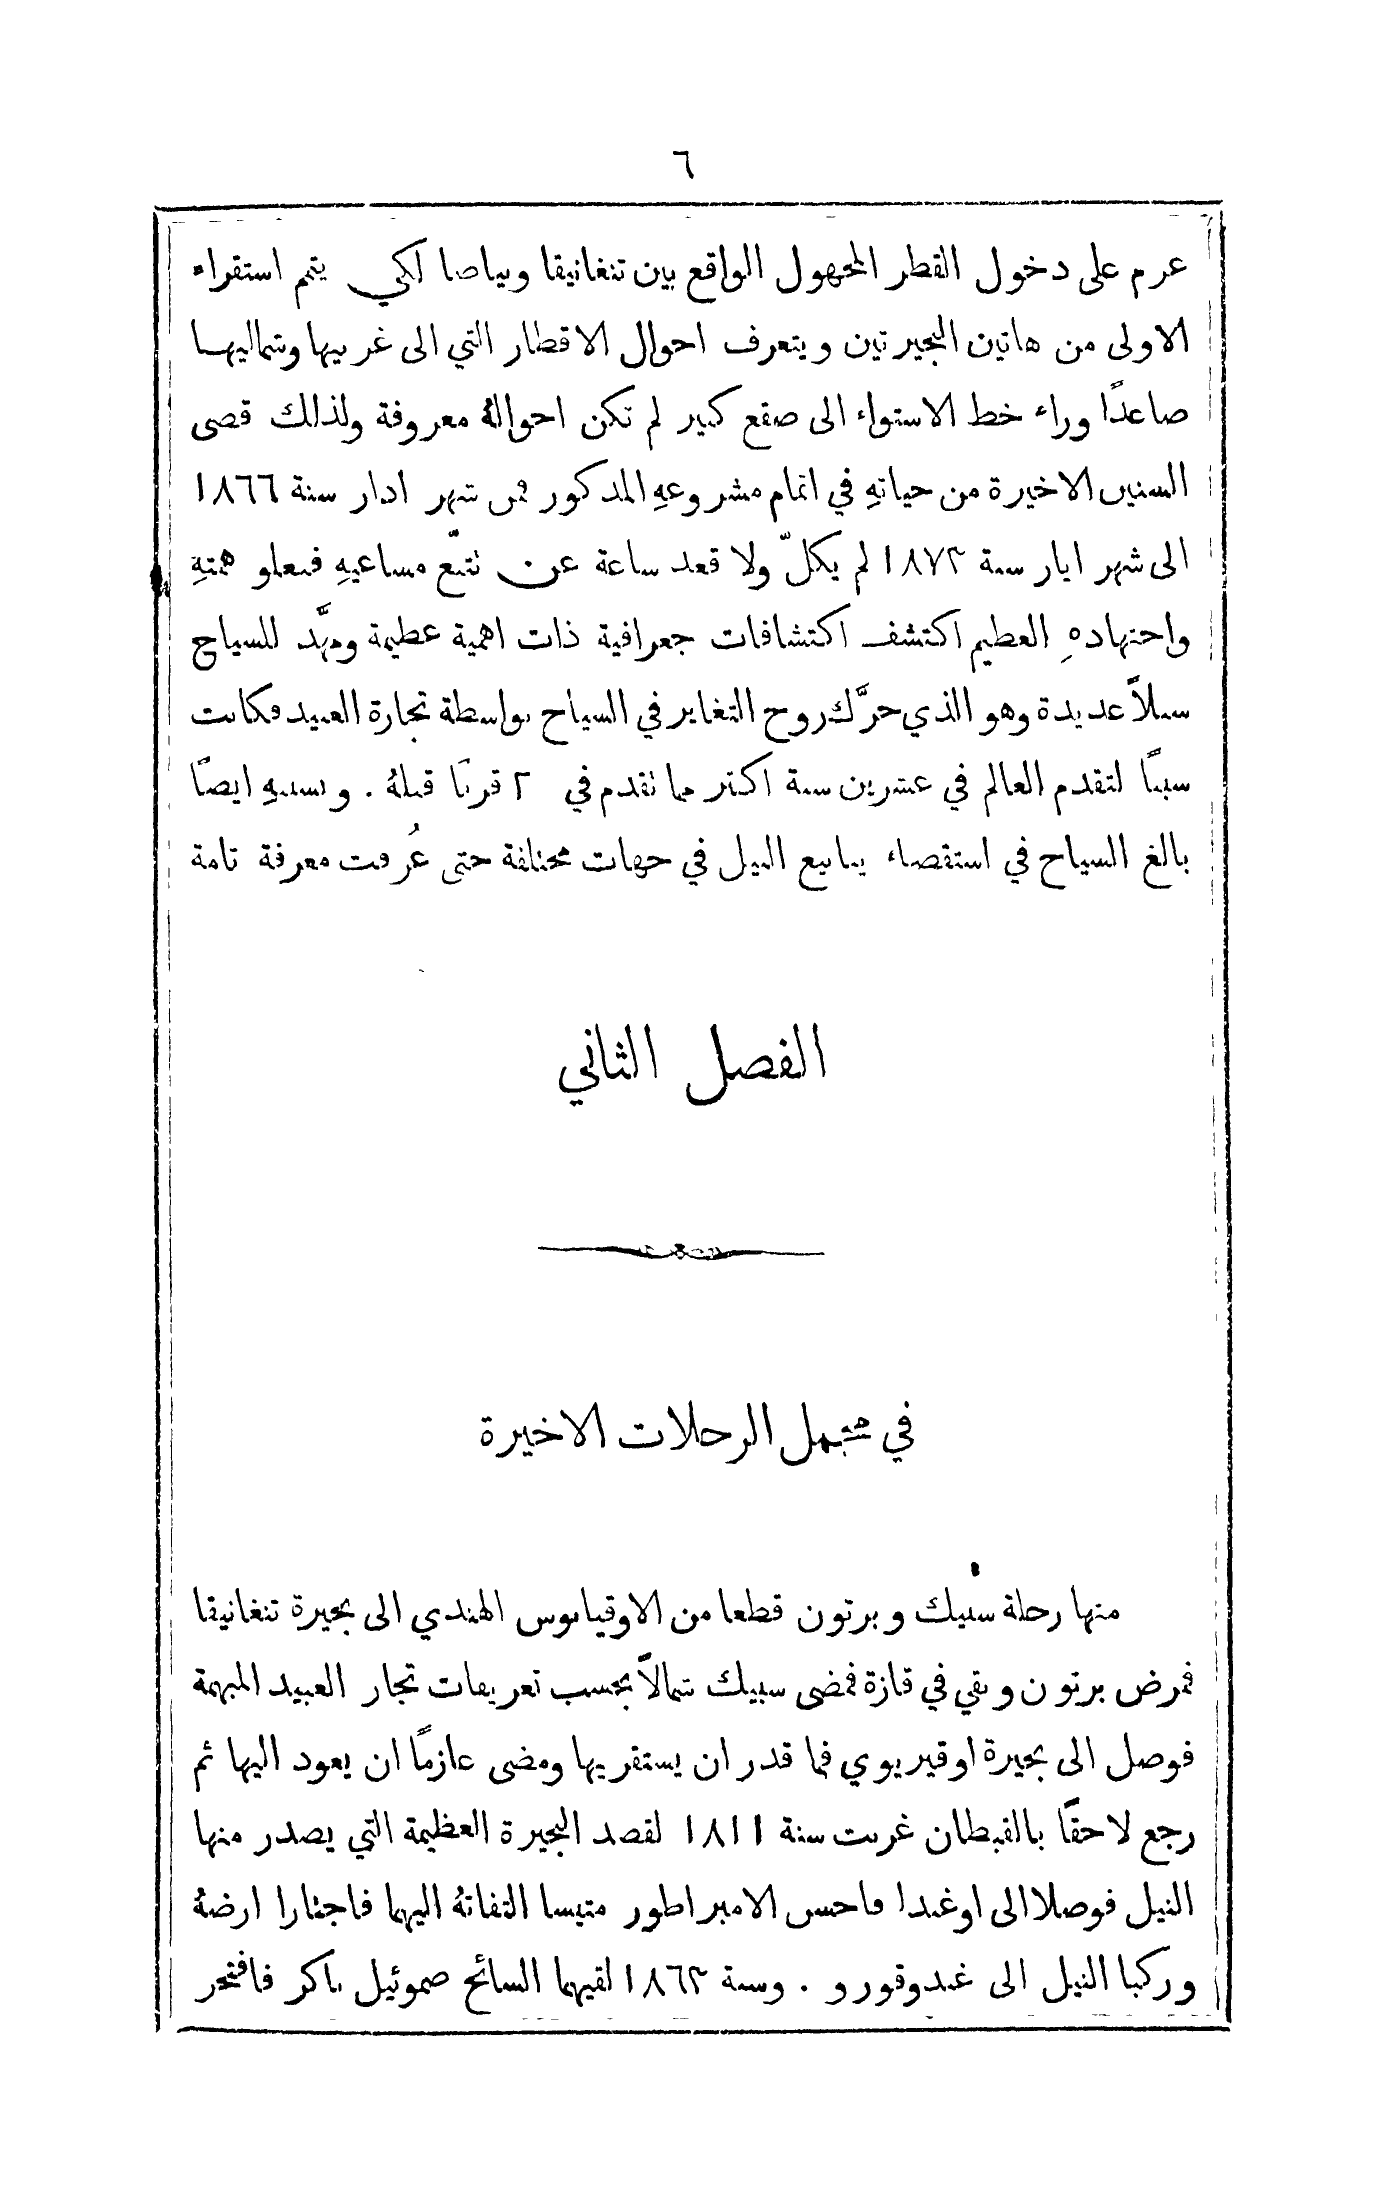 ٦
عزم على دخول القطر المجهول الواقع بين تنغانيقا ونياصا لكي يتمم استقراء
الاولى من هاتين البحيرتين ويتعرف احوال الاقطار التي الى غربيها وشماليها
صاعدًا وراء خط الاستواء الى صقع كبير لم تكن احوالهُ معروفة ولذلك قضى
السنين الاخيرة من حياتهِ في اتمام مشروعهِ المذكور فمن شهر اذار سنة ١٨٦٦
الى شهر ايار سنة ١٨٧٣ لم يكلّ ولا قعد ساعة عن تتبّع مساعيهِ فبعلو همتهِ
واجتهادهِ العظيم اكتشف اكتشافات جغرافية ذات اهمية عظيمة ومهَّد للسياح
سبلاً عديدة وهو الذي حرَّك روح التغاير في السياح بواسطة تجارة العبيد فكانت
سببًا لتقدم العالم في عشرين سنة اكثر مما تقدم في ٢ قرنًا قبلهُ . وبسببهِ ايضًا
بالغ السياح في استقصاء ينابيع النيل في جهات مختلفة حتى عُرفت معرفة تامة
الفصل الثاني
في مجمل الرحلات الاخيرة
منها رحلة سبيك وبرتون قطعا من الاوقيانوس الهندي الى بحيرة تنغانيقا
فمرض برتون وبقي في قازة فمضى سبيك شمالاً بحسب تعريفات تجار العبيد المبهمة
فوصل الى بحيرة اوقيريوي فما قدر ان يستقريها ومضى عازمًا ان يعود اليها ثم
رجع لاحقًا بالقبطان غرنت سنة ١٨١١ لقصد البحيرة العظيمة التي يصدر منها
النيل فوصلا الى اوغندا فاحس الامبراطور متيسا التفاتهُ اليهما فاجتازا ارضهُ
وركبا النيل الى غندوقورو . وسنة ١٨٦٣ لقيهما السائح صموئيل باكر فافتخر